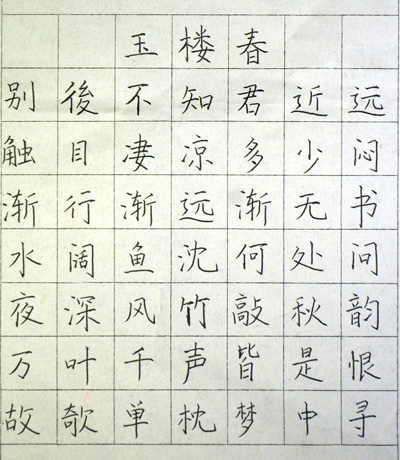 玉楼春
别後不知君近远
触目凄凉多少闷
渐行渐远渐无书
水阔鱼沈何处问
夜深风竹敲秋韵
万叶千声皆是恨
故欹单枕梦中寻